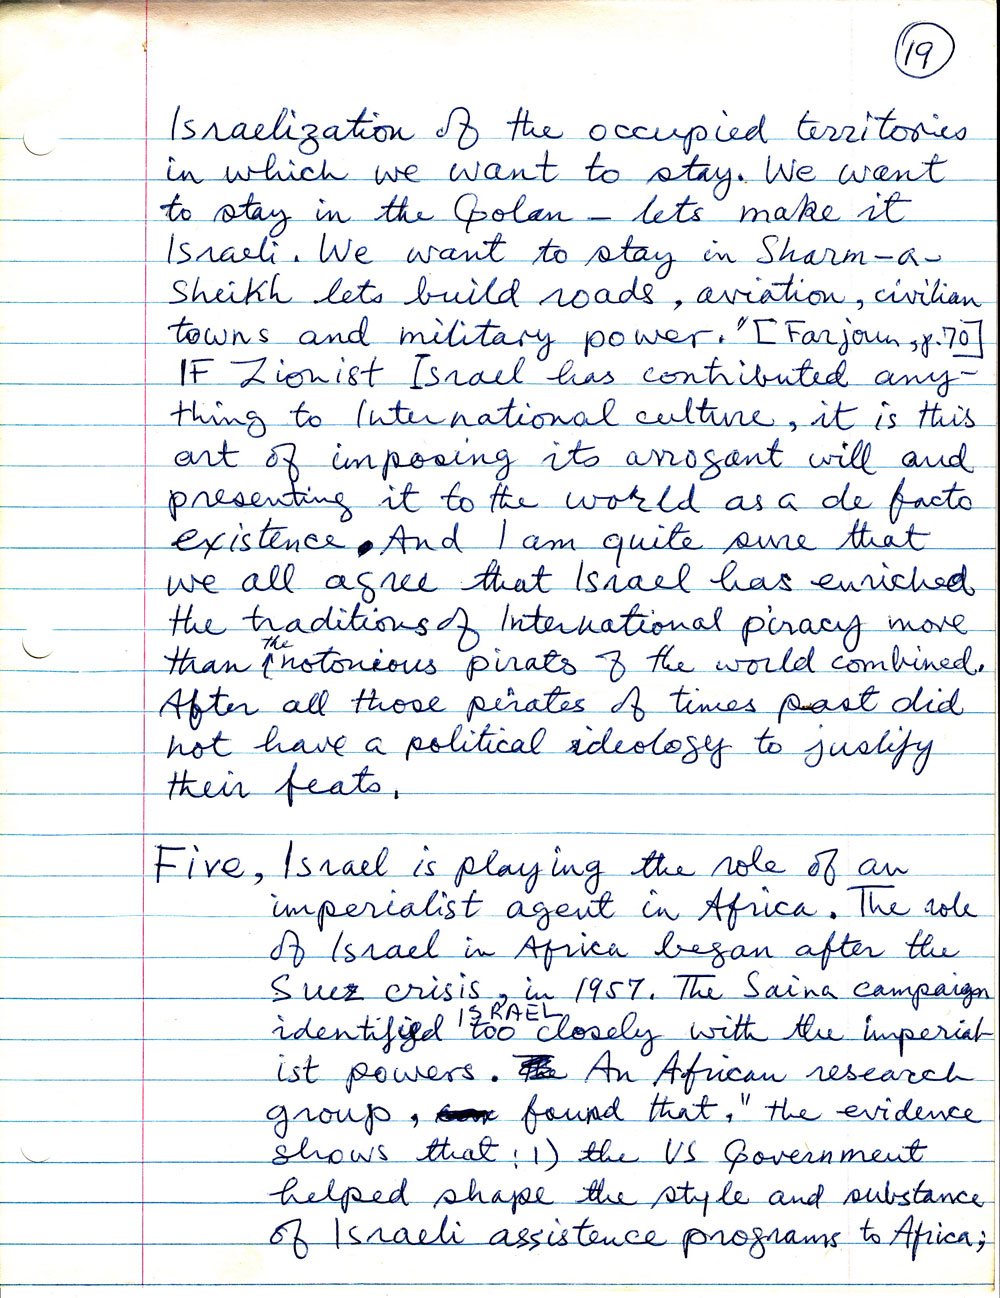 19
Israelization of the occupied territories
in which we want to stay. We want
to stay in the Golan – lets make it
Israeli. We want to stay in Sharm-a-
Sheikh lets build roads, aviation, civilian
towns and military power." [Farjoun, p.70]
IF Zionist Israel has contributed any-
thing to International culture, it is this
art of imposing its arrogant will and
presenting it to the world as a de facto
existence. And I am quite sure that
we all agree that Israel has enriched
the traditions of International piracy more
than the notorious pirats of the world combined.
After all those pirates of times past did
not have a political ideology to justify
their feats.
Five, Israel is playing the role of an
imperialist agent in Africa. The role
of Israel in Africa began after the
Suez crisis, in 1957. The Saina campaign
identified ISRAEL too closely with the imperial-
ist powers. An African research
group, found that, "the evidence
shows that: 1) the US Government
helped shape the style and substance
of Israeli assistence programs to Africa;